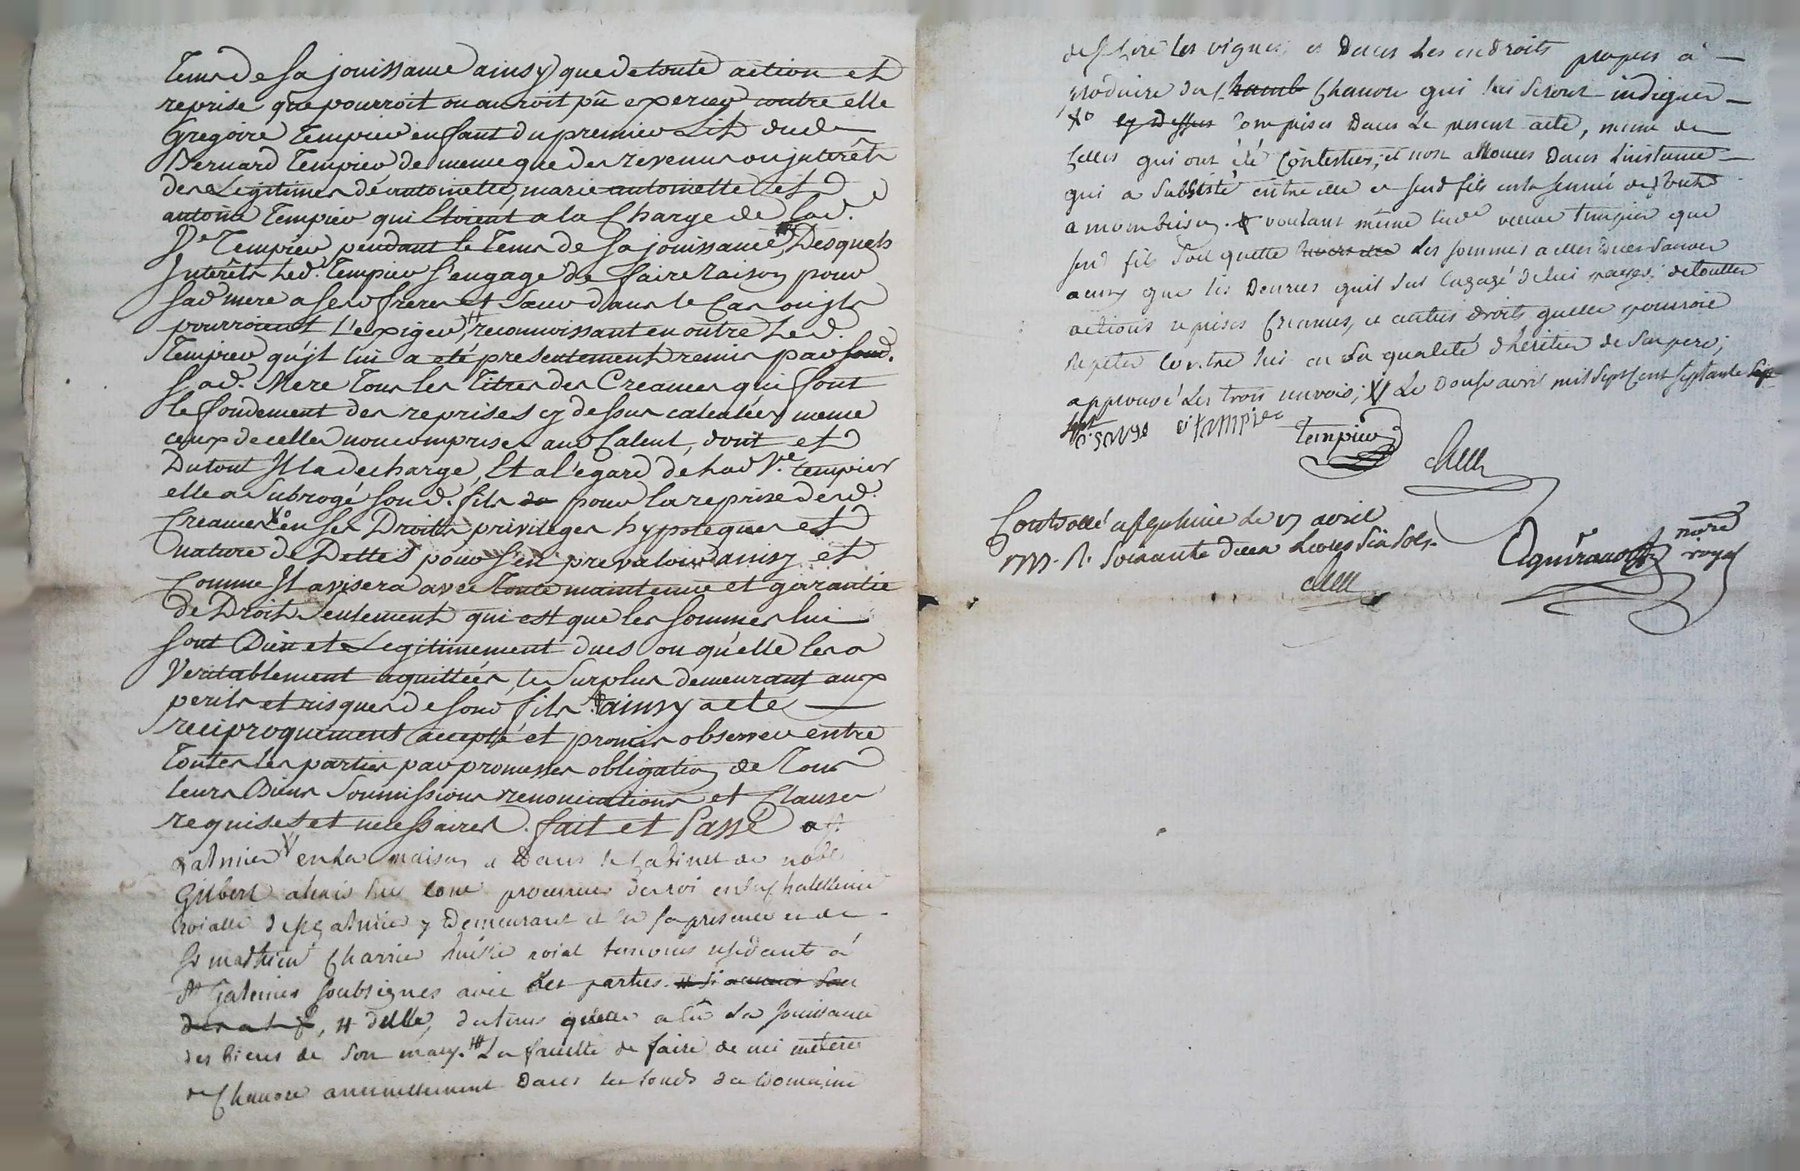 Tems de sa jouissance ainsy que de toute action et
reprise que pourroit ou auroit pû exercer contre elle
Gregoire Tempier enfant du premier Lit dud.
Bernard Tempier de meme que des revenus ou jnterêts
des Legitimes d'éantoinette, marie antoinette et
antoine Tempier qui étoient a la Charge de lad.
Ve. Tempier pendant le Tems de sa jouissance, Desquels
Jnterêts Led. Tempier s'engage de faire raison pour
sad mere a ses freres et soeur dans le Cas ou jls
pourroient l'exiger, # reconnoissant en outre Led.
Tempier qu'jl lui a eté presentement remis par
Sad. Mere Tous les Titres des Creances qui font
le fondement des reprises cy dessus calculées meme
ceux de celles non comprises au Calcul, dont et
Du tout Jl la decharge, Et a l'egard de lad Ve. tempier
elle a Subrogé sond. fils pour la reprise desd.
Creances Xo en ses Droits privileges hypoteques et
nature de Dettes pour s'en prevaloir ainsy et
Comme Jl avisera avec toute maintenue et garantie
de Droit Seulement qui est que les sommes lui
sont Bien et Legitimement dues ou qu'elle les a
Veritablement aquittées, le Surplus demeurant aux
perils et risques de sond fils ainsy acte
reciproquement accepté et promis observer entre
Toutes les parties par promesses obligation de Tous
leurs Biens Soumissions renonciations et Clauses
requises et necessaires. fait et Passé a St.
Galmier en la maison et Dans le Cabinet de noble
Gilbert procureur du roi en la Chatellenie
roialle de St Galmier y Demeurant et en sa presence et de
Sr mathieu Charrier huissier roial temoins residants à
St Galmier soubsignés avec les parties.
, # d'elle, du tems qu'elle a eu la jouissance
des biens de son mary. ## La faculté de faire de
de Chanvre annuellement Dans les fonds du Domaine
les vignes et Dans les endroits propres à
produire du Chanvre qui lui seront indiqués
Xo cy Dessus Comprises Dans Le present acte, meme de
Celles qui ont été Contestées, et non allouées Dans L'instance
qui a Subsisté entre elle et sond fils en la senechaussée
a montbrison. voulant même lade veuve tempier que
sond fils soit quitte Les sommes
ainsy que les Denrées qu'il s'est engagé de lui payer de toutes
actions reprises Creances, et autres droits qu'elle pourroit
repeter Contre lui en sa qualité d'héritier de Son pere;
approuvé Les trois renvois; Le Douse avril mil Sept Cent Septante
sept
tempier
Tempier
Controllé a St galmier Le 17 avril
1777. R. Soixante Deux Livres Six Sols.
notre
royal